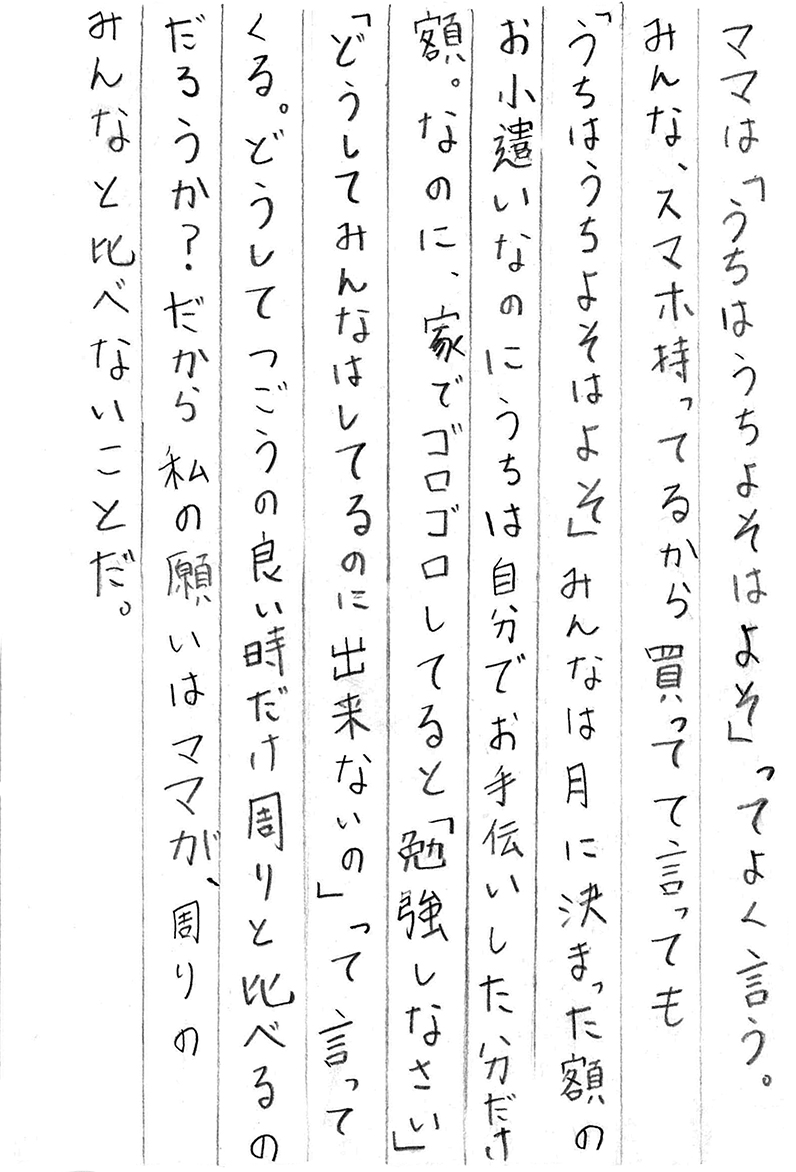 ママは「うちはうちよそはよそ」ってよく言う。
みんな、スマホ持ってるから買ってて言っても
「うちはうちよそはよそ」みんなは月に決まった額の
お小遣いなのにうちは自分でお手伝いした分だけ
額。なのに、家でゴロゴロしてると「勉強しなさい」
「どうしてみんなはしてるのに出来ないの」って言って
くる。どうしてつごうの良い時だけ周りと比べるの
だろうか?だから私の願いはママが、周りの
みんなと比べないことだ。